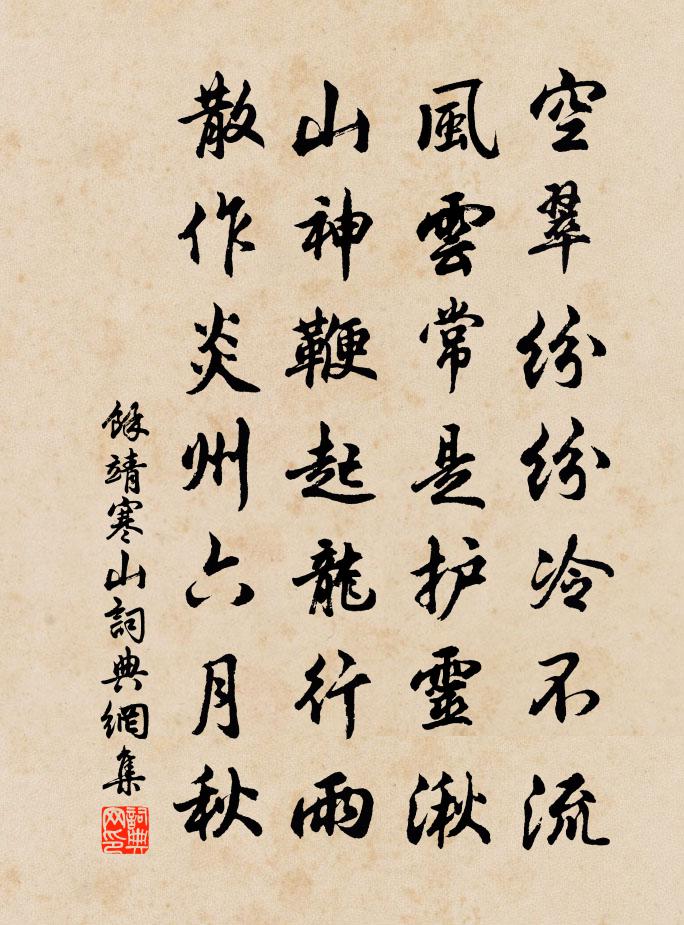 空翠紛紛冷不流
風雲常是护靈湫
山神鞭起龍行雨
散作炎州六月秋
餘靖寒山詞典網集
詞典网印